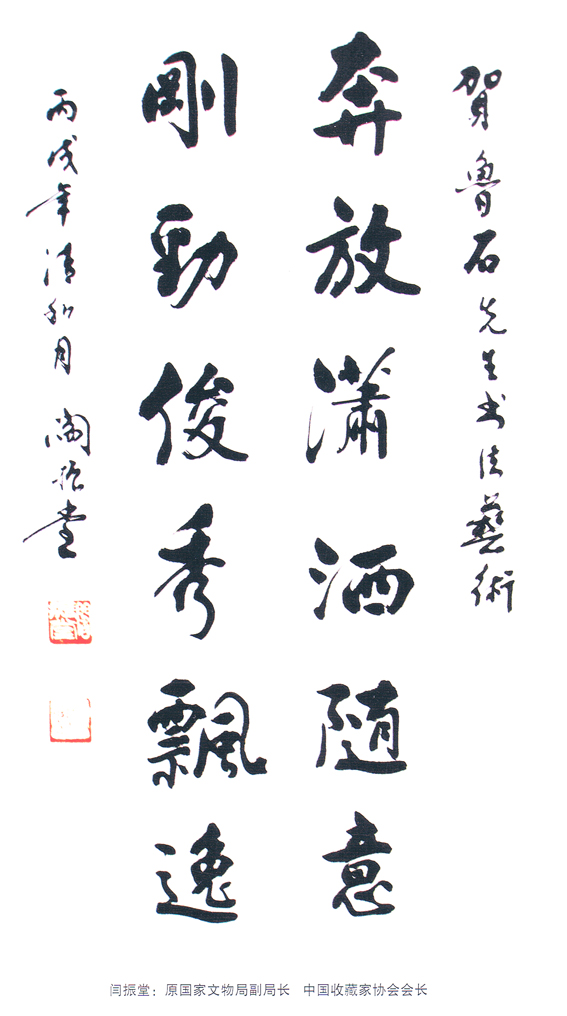 賀魯石先生书法藝術
奔放瀟洒随意
剛勁俊秀飄逸
丙戌年清和月 閆振堂
闫振堂：原国家文物局副局长 中国收藏家协会会长